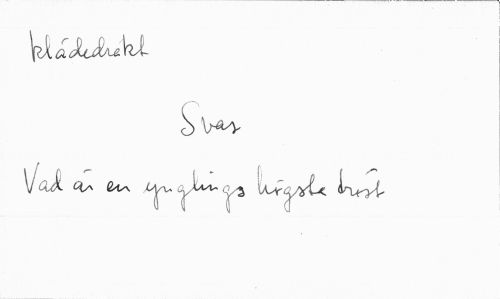 klädedräkt
Svar
Vad är en ynglings högsta tröst